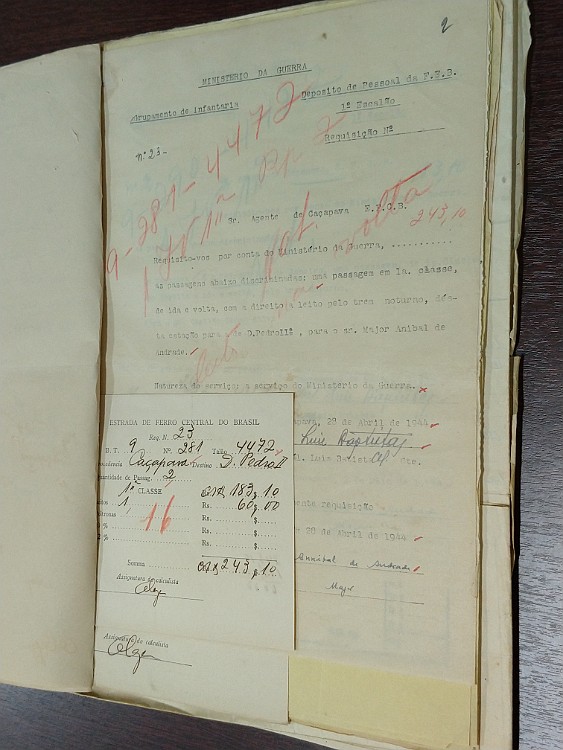 2
MINISTÉRIO DA GUERRA
Agrupamento de Infantaria
Deposito de Pessoal da F.E.B.
1º Escalão
Requisição Nº
Nº 23-
9-281-4472
Sr. Agente de Caçapava E.F.C.B.
volta
243,10
Requisito-vos por conta do Ministério da Guerra, ...........
as passagens abaixo discriminadas: uma passagem em 1a. classe,
de ida e volta, com a direito a leito pelo trem noturno, dés-
ta estação para a de D.Pedro II , para o sr. Major Anibal de
Andrade.
Natureza do serviço: a serviço do Ministério da Guerra.
apava, 28 de Abril de 1944
Luiz Baptista
ente requisição
28 de Abril de 1944
Annibal de Andrade
Major
ESTRADA DE FERRO CENTRAL DO BRASIL
Req. N. 23
B. T. 9 Nº 281 Talão 4472
Caçapava Destino D. Pedro II
antidade de Passag. 2
1ª CLASSE 183,10
1, Rs. 60,00
16
Rs. $
% Rs. $
2 % Rs. $
Somma 243,10
Assignatura do calculista
Assignatura do calculista